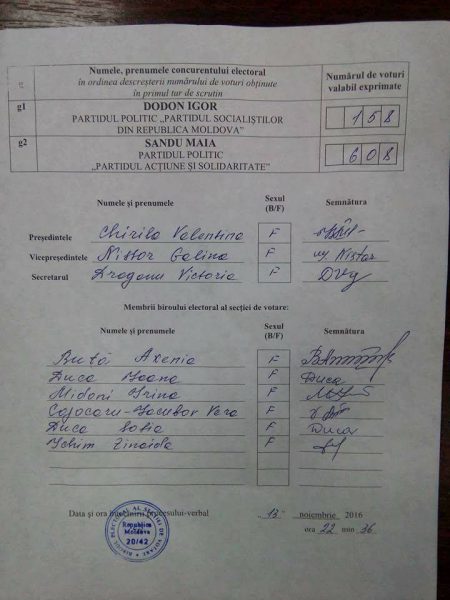 g
Numele, prenumele concurentului electoral
în ordinea descreșterii numărului de voturi obținute
în primul tur de scrutin
Numărul de voturi
valabil exprimate
g1
DODON IGOR
PARTIDUL POLITIC „PARTIDUL SOCIALIȘTILOR
DIN REPUBLICA MOLDOVA”
158
g2
SANDU MAIA
PARTIDUL POLITIC
„PARTIDUL ACȚIUNE ȘI SOLIDARITATE”
608
Numele și prenumele Sexul (B/F) Semnătura
Președintele Chirila Valentina F
Vicepreședintele Nistor Galina F Nistor
Secretarul Draganu Victoria F
Membrii biroului electoral al secției de votare:
Numele și prenumele Sexul (B/F) Semnătura
Bută Axenia F
Duca Ioana F Duca
Midoni Irina F
Cojocaru-Iacubov Vera F
Duca Sofia F Duca
Ichim Zinaida F
Data și ora întocmirii procesului-verbal „13” noiembrie 2016
ora 22 min 36
BIROUL ELECTORAL AL SECȚIEI DE VOTARE
Republica
Moldova
20/42